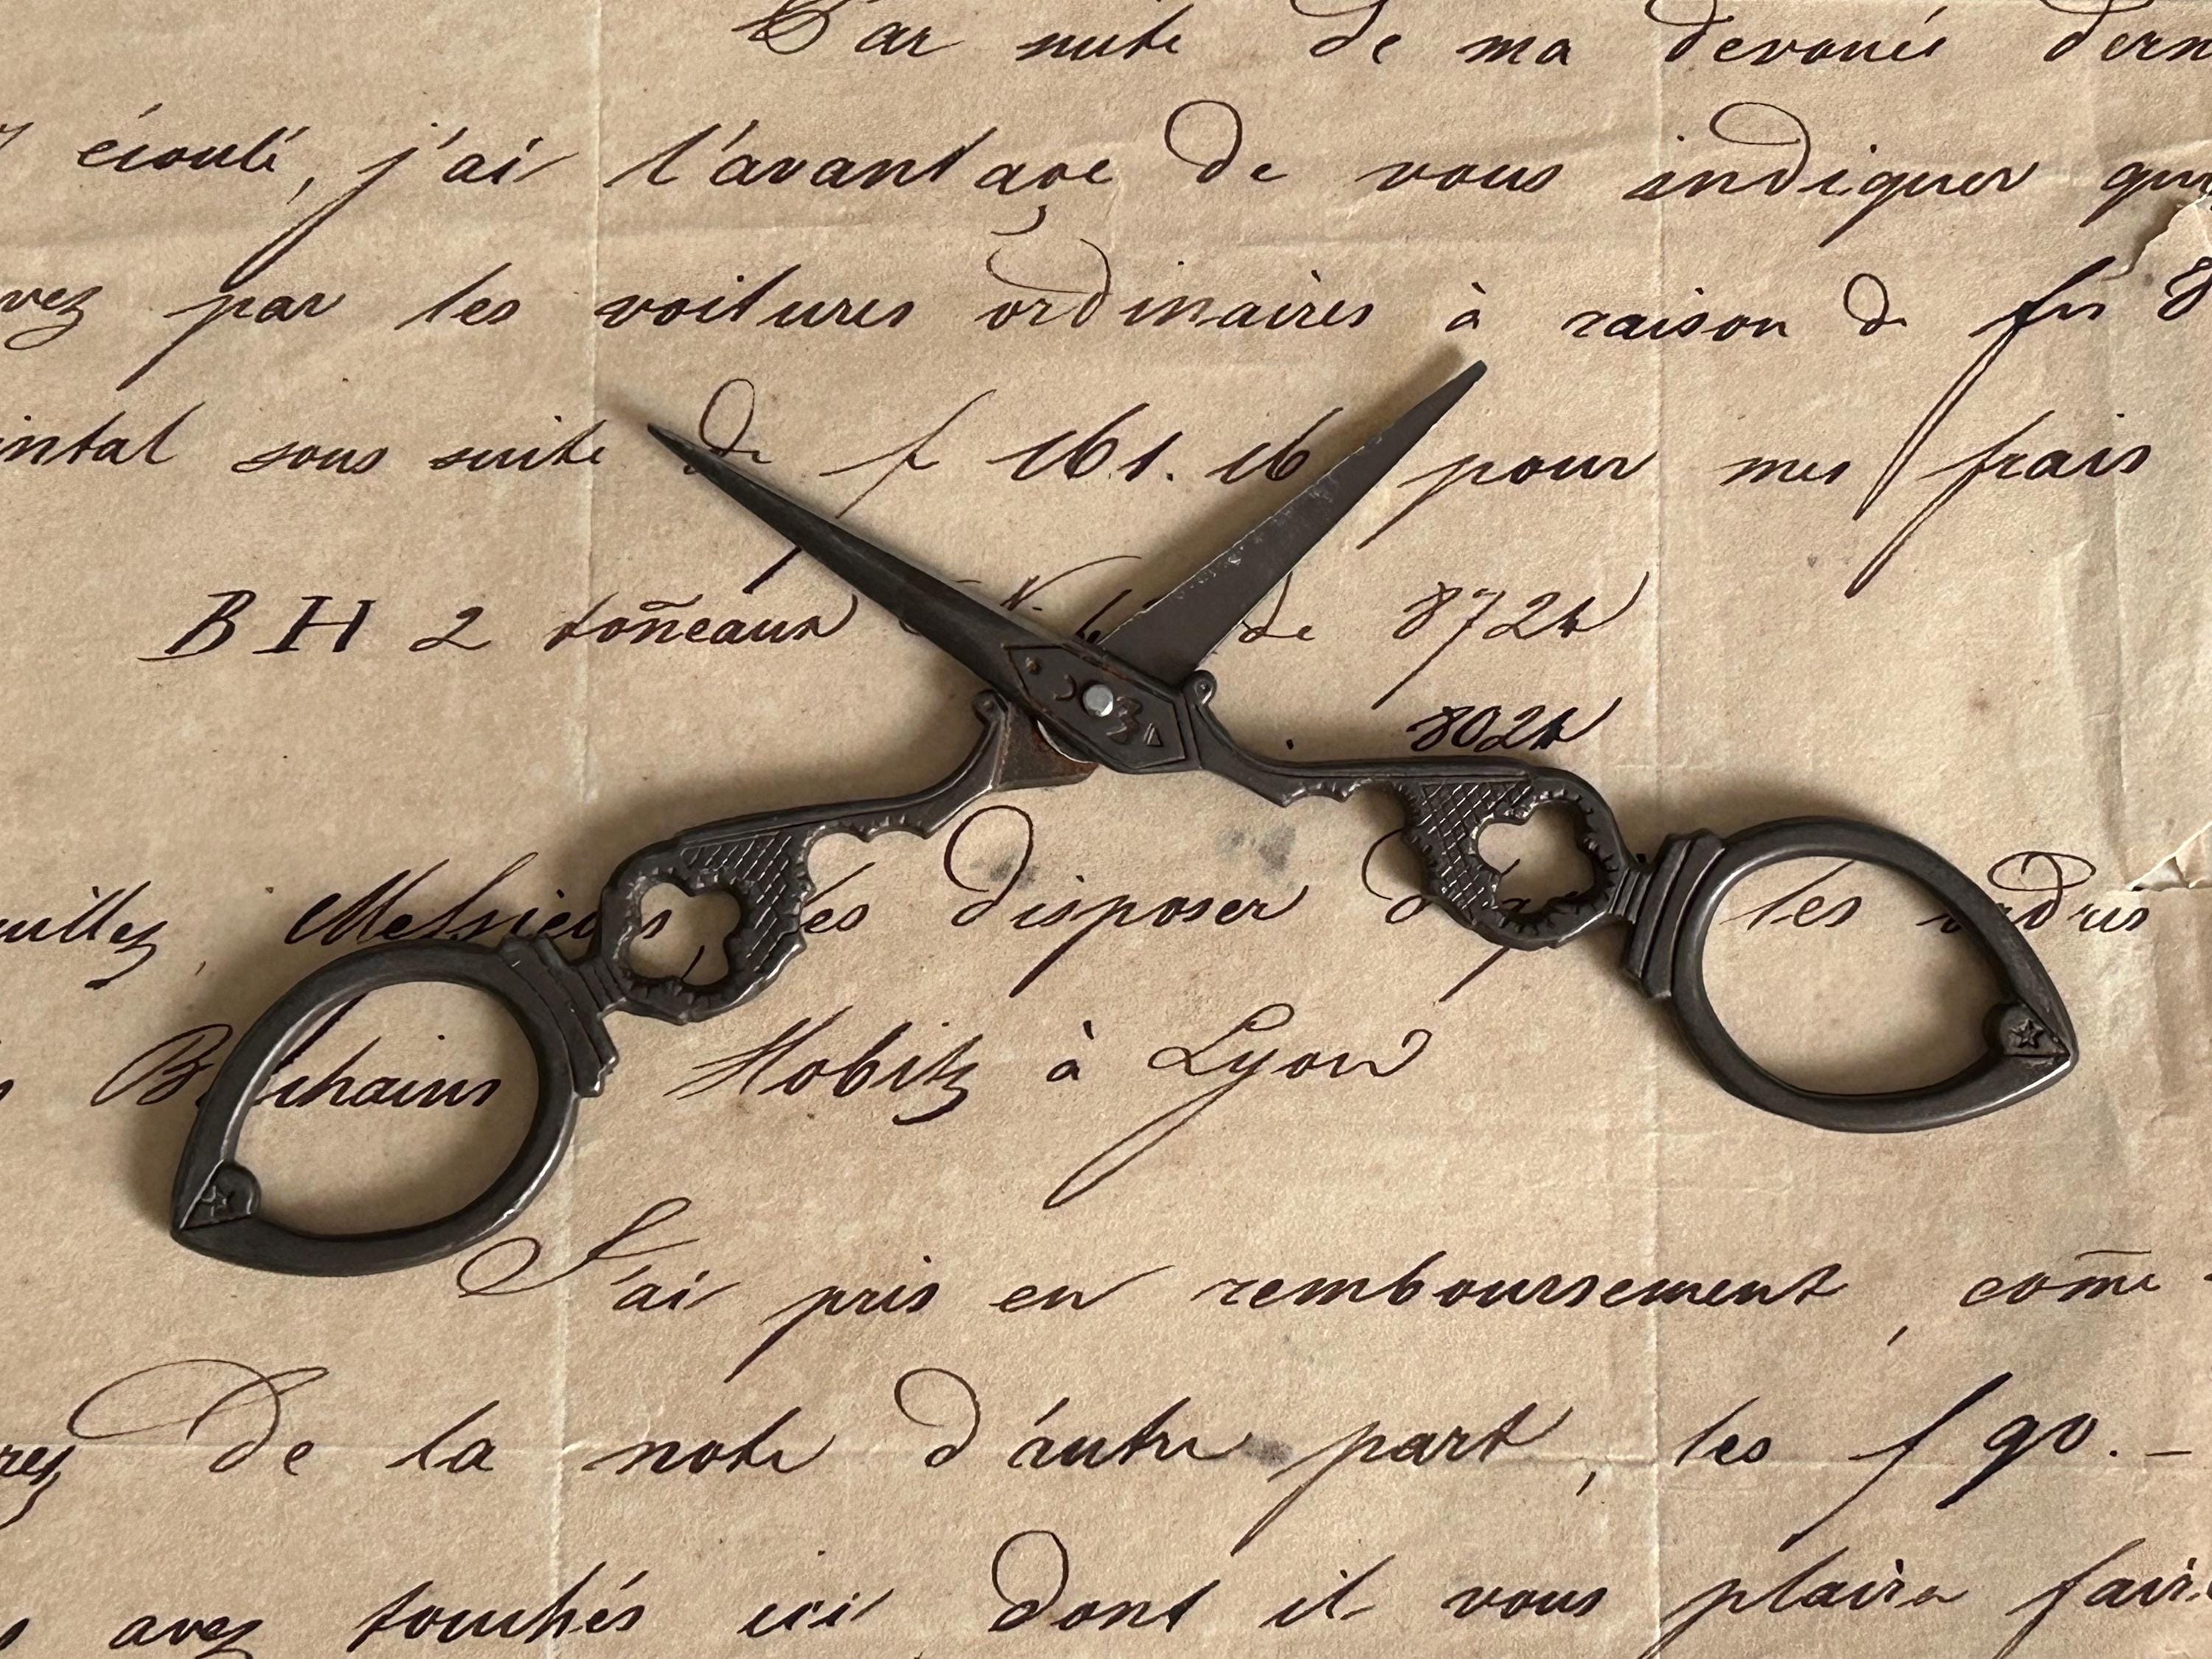 Par suite de ma devouée dern
écoulé, j'ai l'avantage de vous indiquer que
vez par les voitures ordinaires à raison de frs 8
intal sous suite de f 161.16 pour mes frais
BH 2 toñeaux de 872
802
uillez, Messieurs les disposer les ordres
Hobitz à Lyon
J'ai pris en remboursement, com̄e
rez de la note d'autre part, les f 90.–
avez touchés ici dont il vous plaira fair